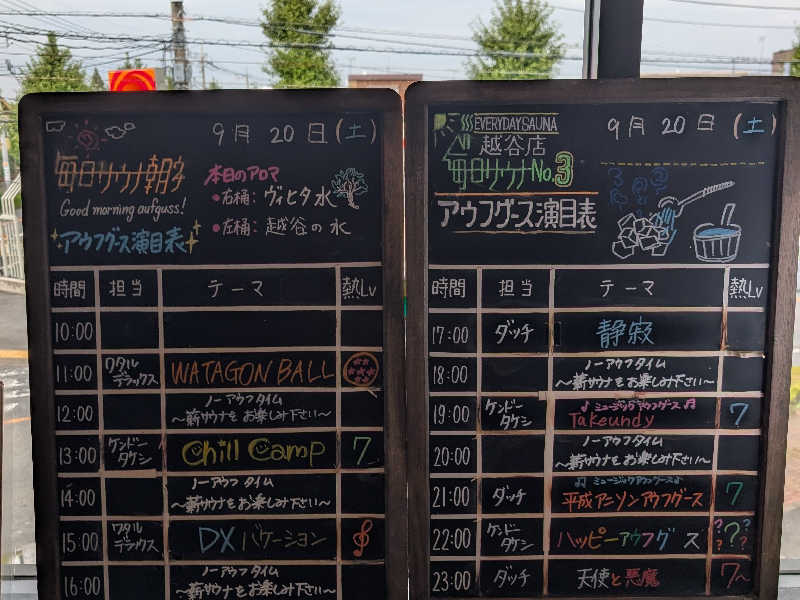 9月 20日 (土)
毎日サウナ朝ウ
Good morning aufguss!
アウフグース演目表
本日のアロマ
・右桶: ヴィヒタ水
・左桶: 越谷の水
時間 担当 テーマ 熱Lv
10:00
11:00 ワタルデラックス WATAGON BALL
12:00 ノーアウフタイム
〜薪サウナをお楽しみ下さい〜
13:00 ケンドータケシ Chill Camp 7
14:00 ノーアウフタイム
〜薪サウナをお楽しみ下さい〜
15:00 ワタルデラックス DXバケーション
16:00 ノーアウフタイム
〜薪サウナをお楽しみ下さい〜
EVERYDAY SAUNA
越谷店
毎日サウナNo.3
アウフグース演目表
9月 20日 (土)
時間 担当 テーマ 熱Lv
17:00 ダッチ 静寂
18:00 ノーアウフタイム
〜薪サウナをお楽しみ下さい〜
19:00 ケンドータケシ ♪ミュージックアウフグース♫
Takeundy 7
20:00 ノーアウフタイム
〜薪サウナをお楽しみ下さい〜
21:00 ダッチ ♫ミュージックアウフグース♪
平成アニソンアウフグース 7
22:00 ケンドータケシ ハッピーアウフグース ?????
23:00 ダッチ 天使と悪魔 7〜